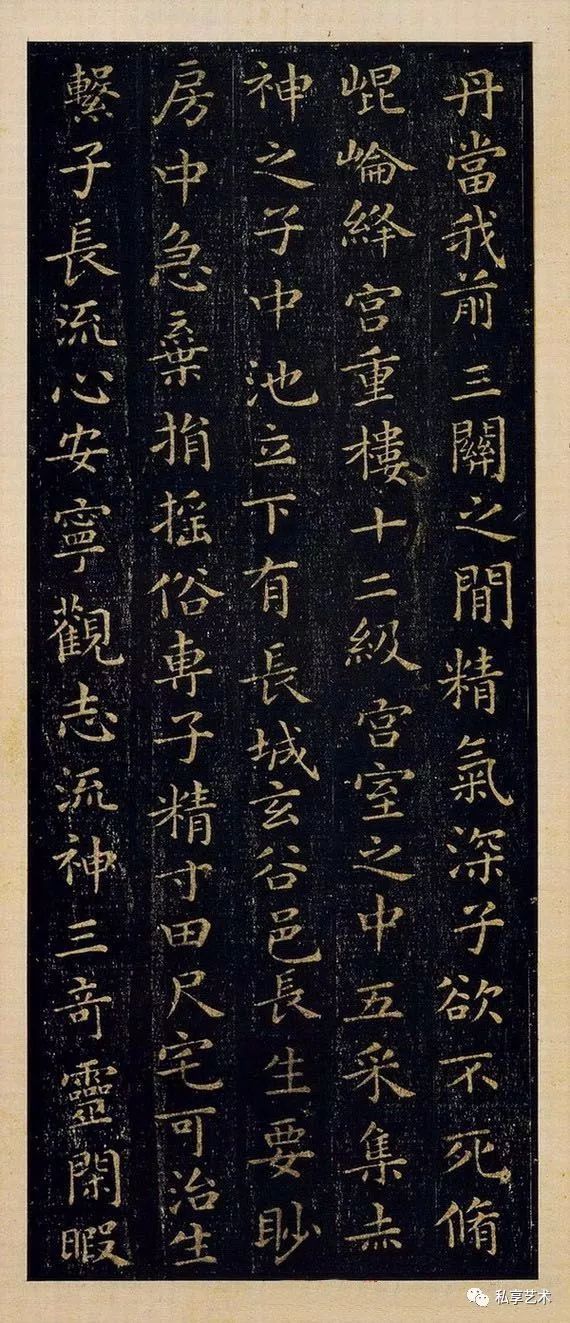 丹當我前三關之閒精氣深子欲不死脩
崐崘絳宮重樓十二級宮室之中五采集赤
神之子中池立下有長城玄谷邑長生要眇
房中急棄捐搖俗專子精寸田尺宅可治生
繫子長流心安寧觀志流神三奇靈閑暇
私享艺术